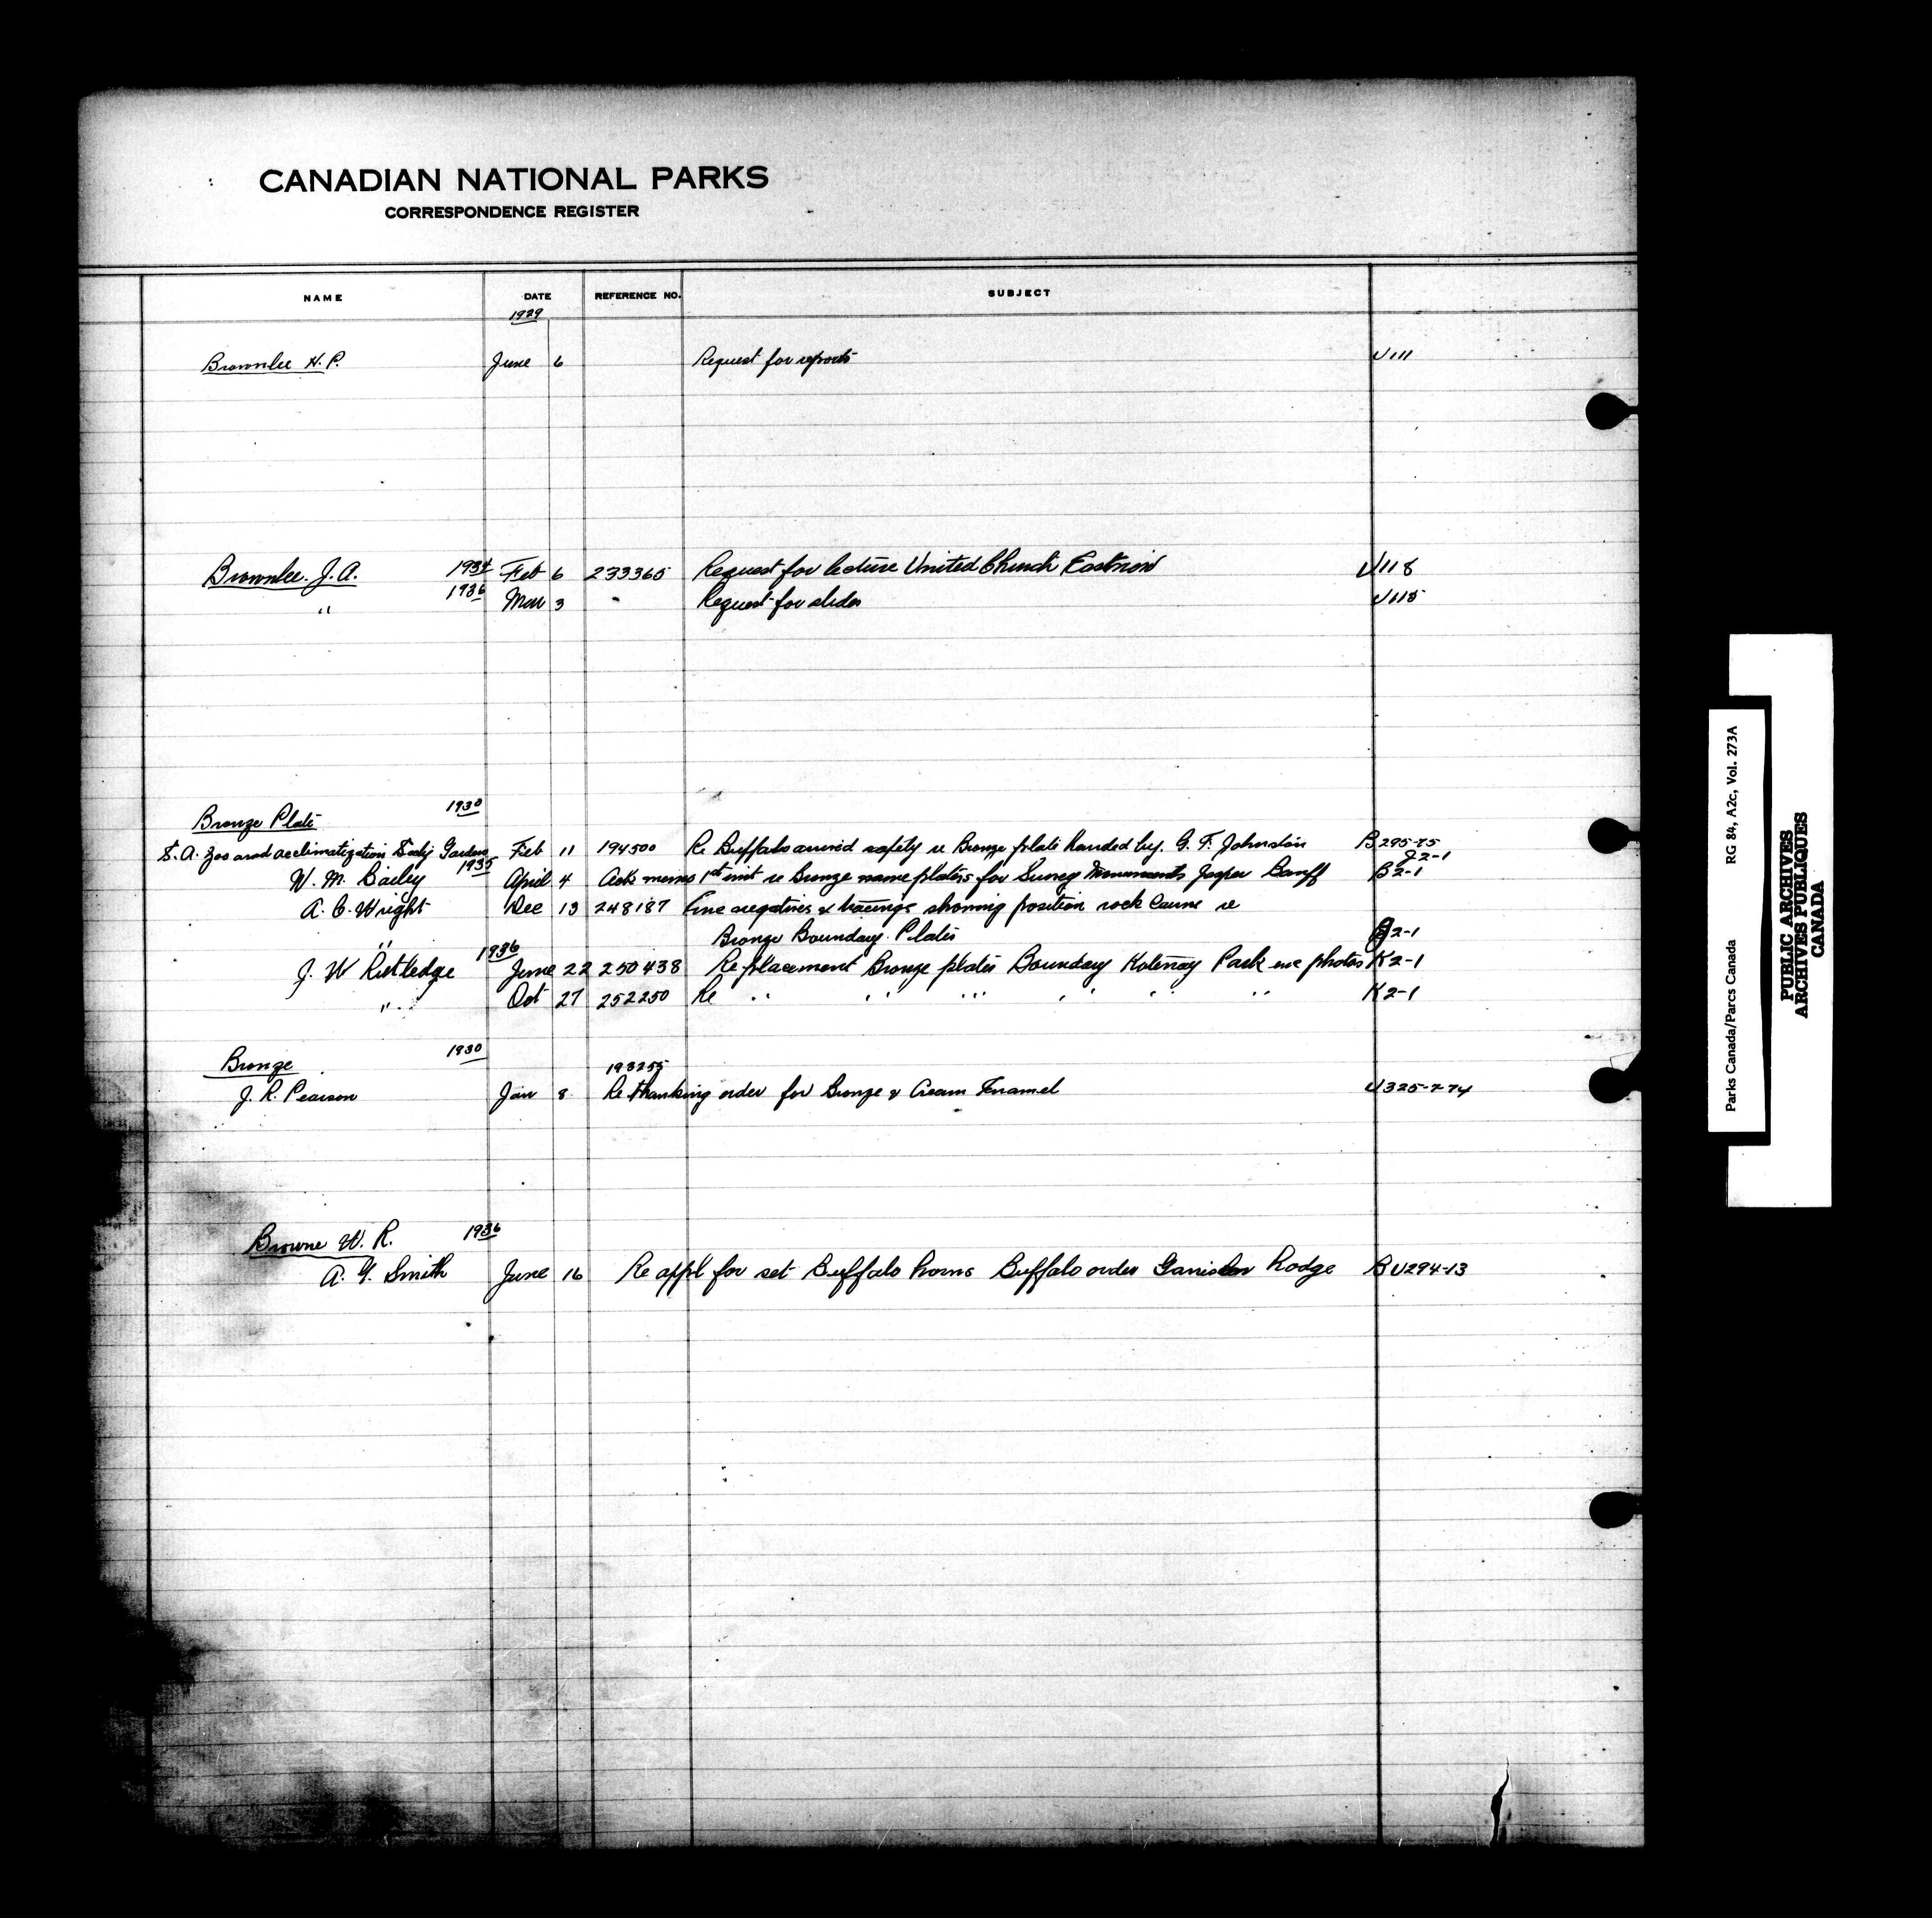 CANADIAN NATIONAL PARKS
CORRESPONDENCE REGISTER
NAME DATE REFERENCE NO. SUBJECT
1929
Brownlee H. P. June 6 Request for reports U111
Brownlee. J. A. 1934 Feb 6 233365 Request for lecture United Church U118
" 1936 Mar 3 " Request for slides U115
Bronze Plate 1930
S. A. Zoo and acclimatization Gardens Feb 11 194500 Re Buffalo arrived safety re Bronze plate handed by. G. F. Johnston B295-75
J2-1
W. M. Bailey 1935 April 4 Ack memo 1st inst re Bronze name plates for Survey Monuments Jasper Banff B2-1
A. C. Wright Dec 13 248187 Enc negatives & tracings showing position rock re
" Bronze Boundary. Plates 2-1
J. W Rutledge 1936 June 22 250438 Replacement Bronze plates Boundary Kotenay Park enc photos K2-1
" Oct 27 252250 Re " " " " " " K2-1
Bronze 1930
193255
J. R. Pearson Jan 8 Re thanking order for Bronze & Cream Enamel U325-7-74
Browne W. R. 1936
A. G. Smith June 16 Re appl for set Buffalo horns Buffalo order BU294-13
Parks Canada/Parcs Canada RG 84, A2c, Vol. 273A
PUBLIC ARCHIVES
ARCHIVES PUBLIQUES
CANADA